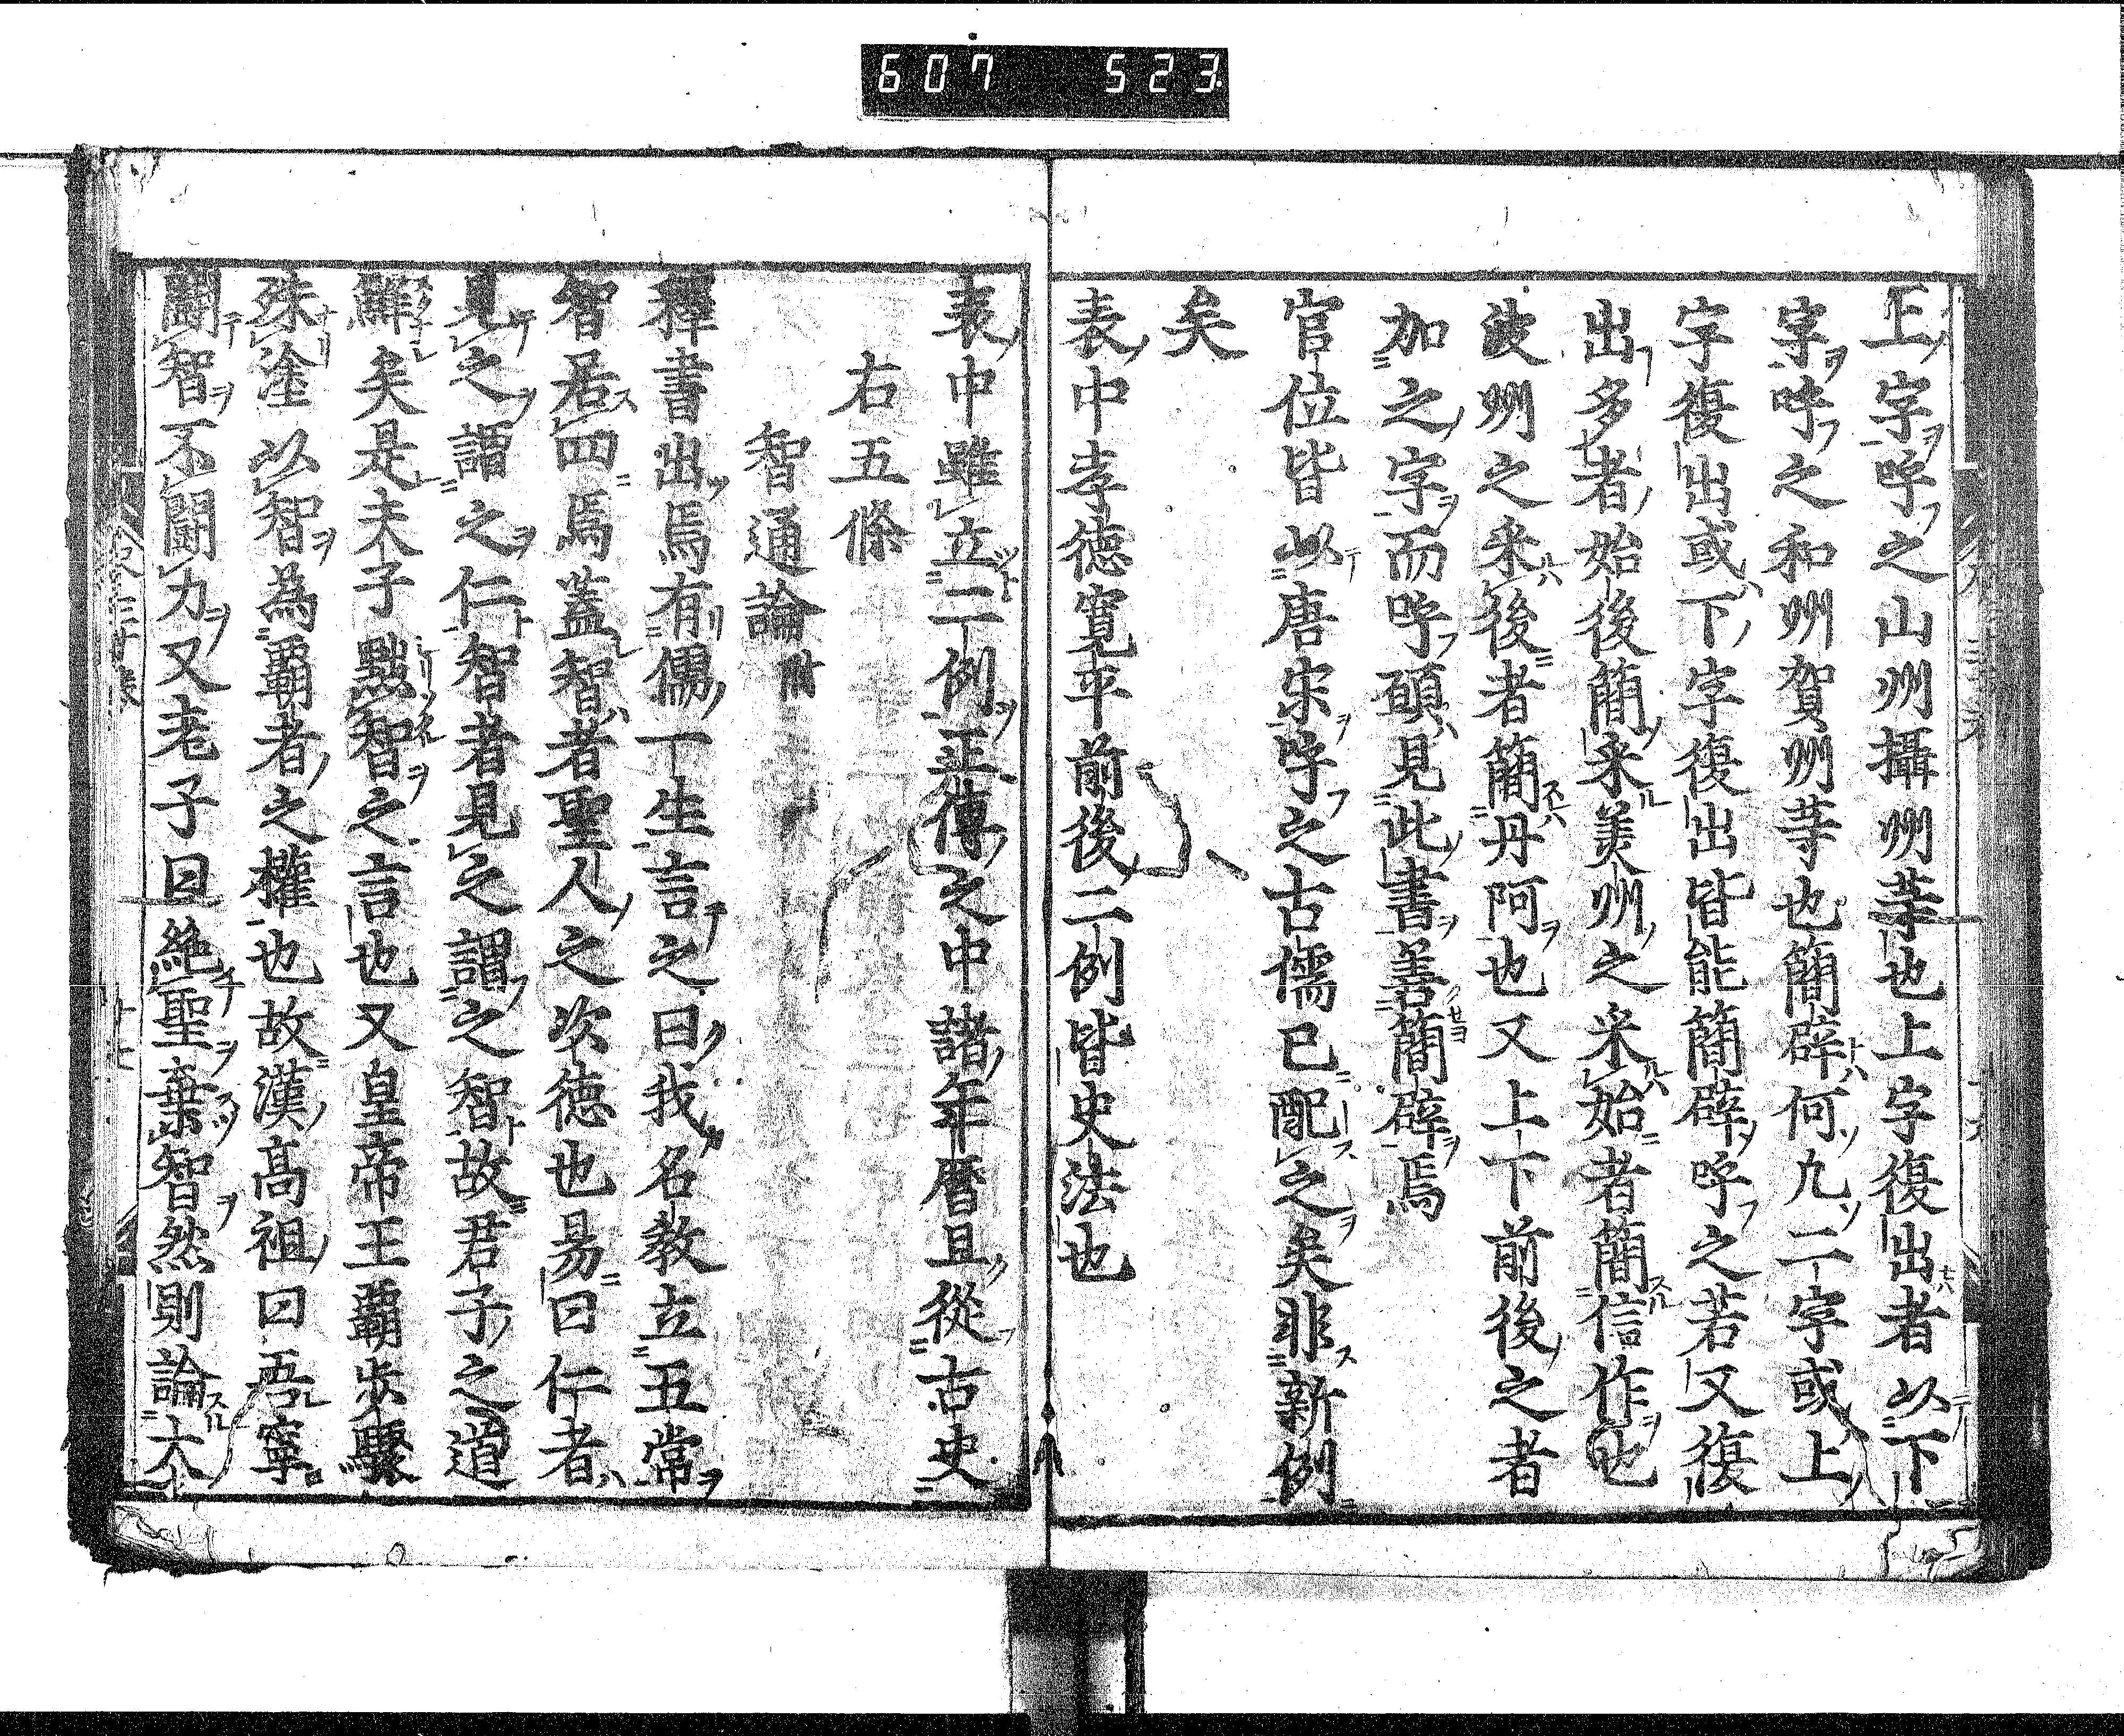 607 523
上字呼之山州攝州等也上字復出者以下
字呼之和州賀州等也簡辟何九二字或上
字復出或下字復出皆能簡辟呼之若又復
出多者始後簡釆美州之釆始者簡信作也
波州之釆後者簡丹阿也又上下前後之者
加之字而呼頋見此書善簡辟焉
官位皆以唐宋呼之古儒已配之矣非新例
矣
表中孝德寬平前後二例皆史法也
表中雖立二例正傳之中諸年曆且從古史
右五條
智通論附
釋書出焉有儒丁生言之曰我名教立五常
智居四焉蓋智者聖人之次德也易曰仁者
見之謂之仁智者見之謂之智故君子之道
鮮矣是夫子點智之言也又皇帝王霸步驟
殊塗以智為霸者之權也故漢高祖曰吾寧
鬪智不鬪力又老子曰絶聖棄智然則論大